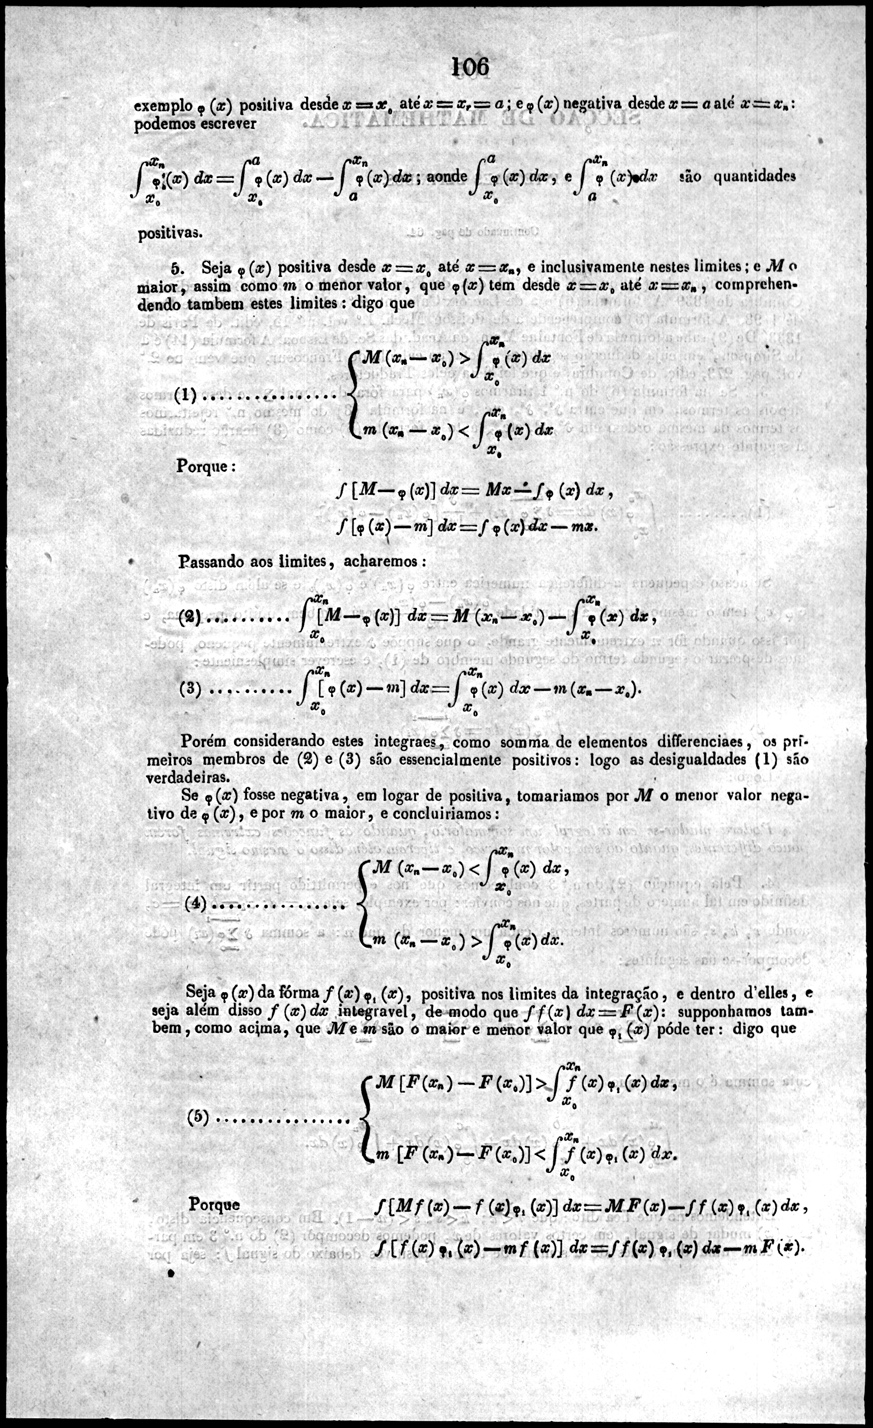 106
exemplo φ (x) positiva desde x = x₀ até x = xᵣ = a; e φ (x) negativa desde x = a até x = xₙ:
podemos escrever
∫_{x₀}^{xₙ} φ (x) dx = ∫_{x₀}^{a} φ (x) dx — ∫_{a}^{xₙ} φ (x) dx; aonde ∫_{x₀}^{a} φ (x) dx, e ∫_{a}^{xₙ} φ (x) dx são quantidades
positivas.
5. Seja φ (x) positiva desde x = x₀ até x = xₙ, e inclusivamente nestes limites; e M o
maior, assim como m o menor valor, que φ (x) tem desde x = x₀ até x = xₙ, comprehen-
dendo tambem estes limites: digo que
(1) ................. { M (xₙ — x₀) > ∫_{x₀}^{xₙ} φ (x) dx
m (xₙ — x₀) < ∫_{x₀}^{xₙ} φ (x) dx
Porque:
∫ [M — φ (x)] dx = Mx — ∫ φ (x) dx,
∫ [φ (x) — m] dx = ∫ φ (x) dx — mx.
Passando aos limites, acharemos:
(2) .......... ∫_{x₀}^{xₙ} [M — φ (x)] dx = M (xₙ — x₀) — ∫_{x₀}^{xₙ} φ (x) dx,
(3) .......... ∫_{x₀}^{xₙ} [φ (x) — m] dx = ∫_{x₀}^{xₙ} φ (x) dx — m (xₙ — x₀).
Porém considerando estes integraes, como somma de elementos differenciaes, os pri-
meiros membros de (2) e (3) são essencialmente positivos: logo as desigualdades (1) são
verdadeiras.
Se φ (x) fosse negativa, em logar de positiva, tomariamos por M o menor valor nega-
tivo de φ (x), e por m o maior, e concluiriamos:
(4) ................. { M (xₙ — x₀) < ∫_{x₀}^{xₙ} φ (x) dx,
m (xₙ — x₀) > ∫_{x₀}^{xₙ} φ (x) dx.
Seja φ (x) da fórma f (x) φ₁ (x), positiva nos limites da integração, e dentro d'elles, e
seja além disso f (x) dx integravel, de modo que ∫ f (x) dx = F (x): supponhamos tam-
bem, como acima, que M e m são o maior e menor valor que φ₁ (x) póde ter: digo que
(5) ................. { M [F (xₙ) — F (x₀)] > ∫_{x₀}^{xₙ} f (x) φ₁ (x) dx,
m [F (xₙ) — F (x₀)] < ∫_{x₀}^{xₙ} f (x) φ₁ (x) dx.
Porque ∫ [M f (x) — f (x) φ₁ (x)] dx = M F (x) — ∫ f (x) φ₁ (x) dx,
∫ [f (x) φ₁ (x) — m f (x)] dx = ∫ f (x) φ₁ (x) dx — m F (x).